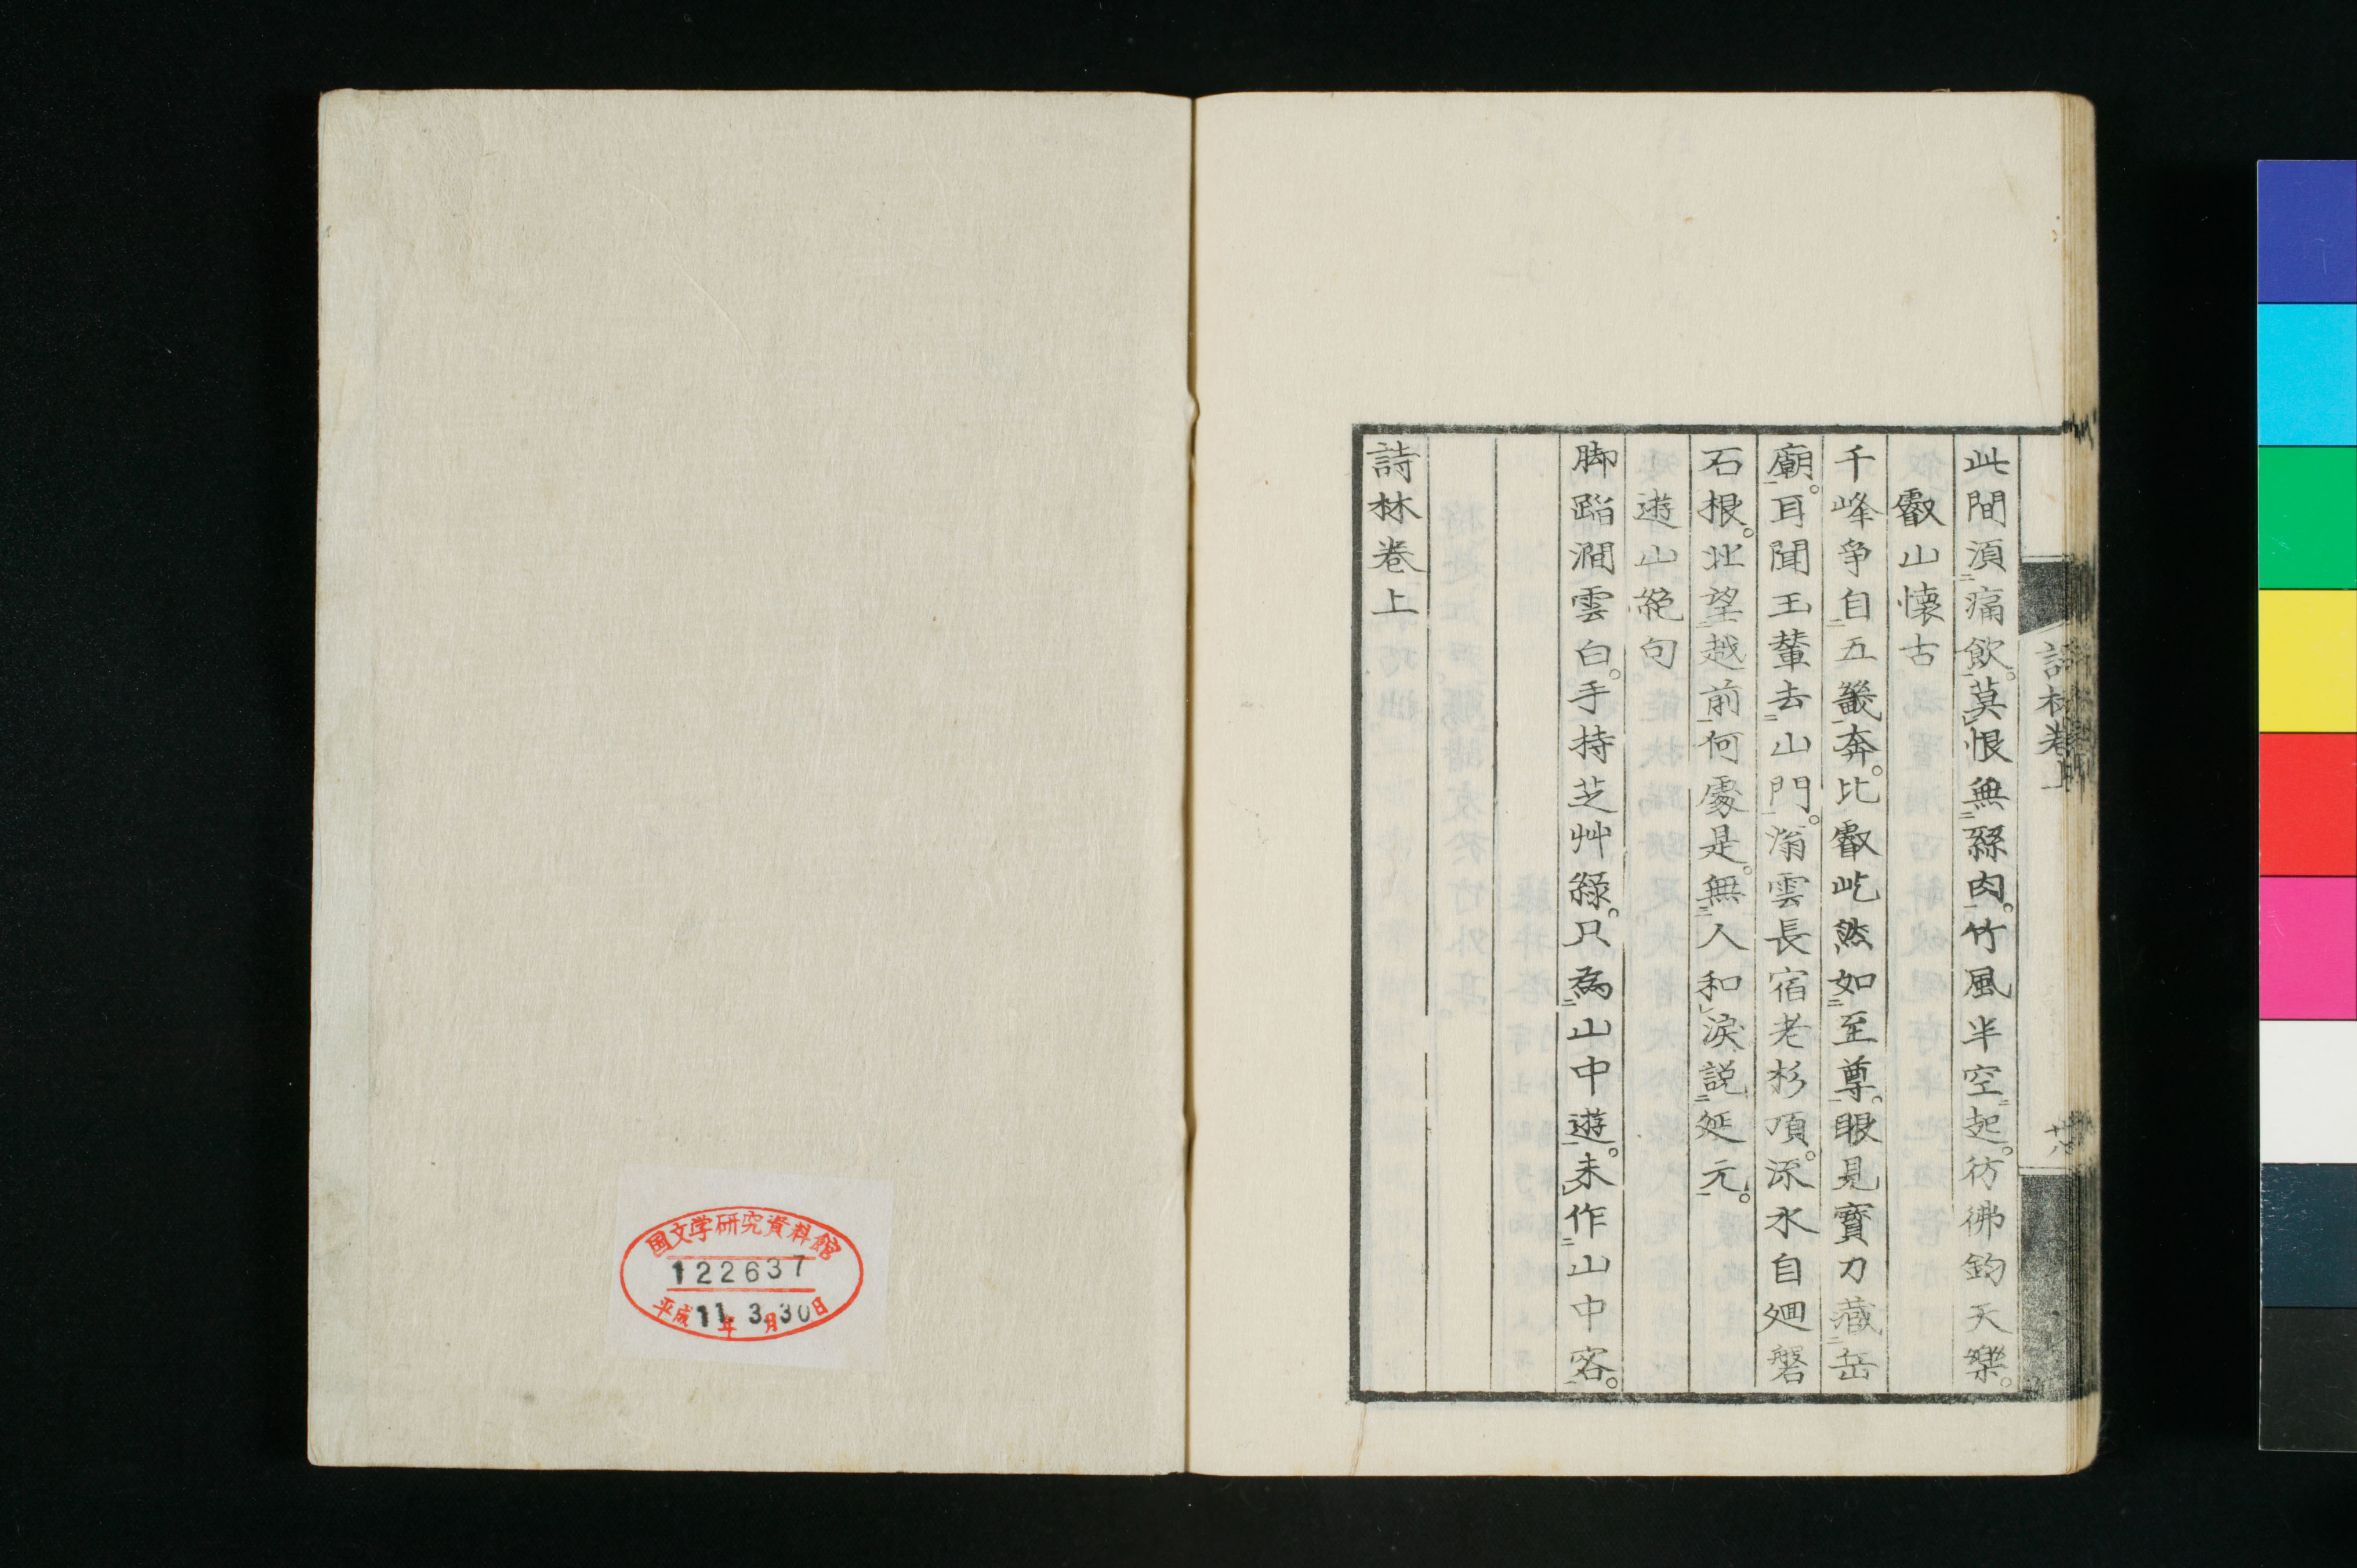 此間須痛飲。莫恨無絲肉。竹風半空起。彷彿鈞天樂。
叡山懷古
千峰争自五畿奔。比叡屹然如至尊。眼見寶刀藏岳
廟。耳聞玉輦去山門。滃雲長宿老杉頂。流水自廻磐
石根。北望越前何處是。無人和淚説延元。
遊山絶句
脚蹈澗雲白。手持芝艸綠。只為山中遊。未作山中客。
詩林卷上
詩林卷上
廿八
国文学研究資料館
122637
平成11年3月30日